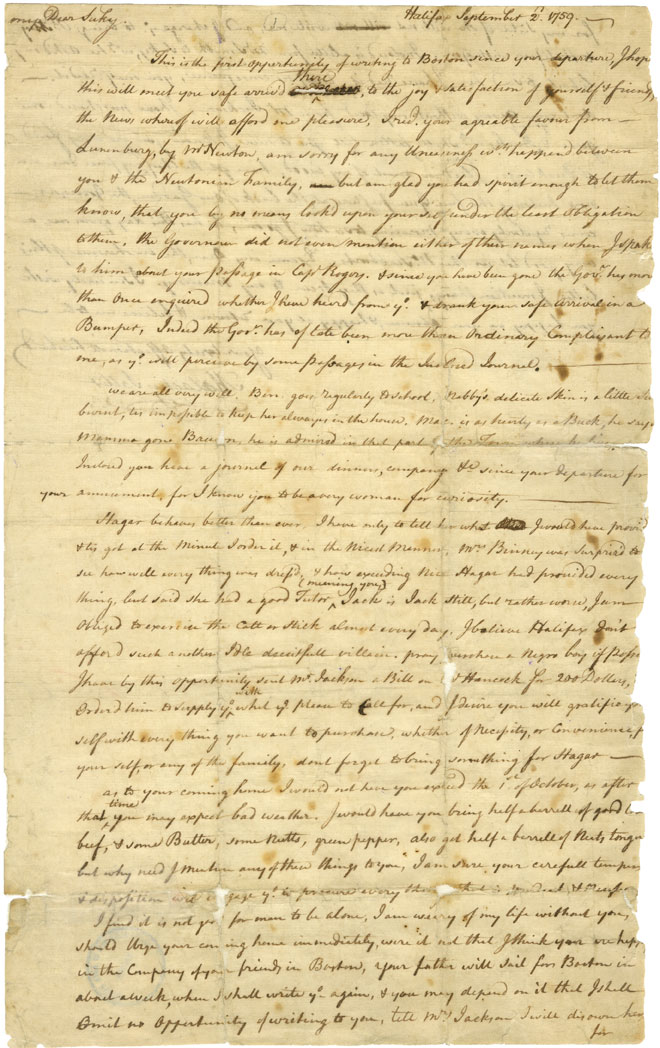 my Dear Suky Halifax September 2d. 1759.
This is the first opportunity of writing to Boston since your departure, I hop
this will meet you safe arrived there, to the joy & satisfaction of yourself & friends,
the News whereof will afford me pleasure, I recd. your agreable favour from
Lunenburg, by Mr Newton, am sorry for any Uneasiness wch. happend between
you & the Newtonian Family, but am glad you had spirit enough to let them
know, that you by no means look'd upon yourself under the least Obligation
to them, the Governour did not even mention either of their names when I spake
to him about your passage in Capt. Rogers. & since you have been gone the Govr. has mor
than once enquired whether I have heard from yo. & drank your safe arrival in a
Bumper, Indeed the Govr. has of late been more than Ordinary Complisant to
me, as yo. will perceive by some passages in the Inclosed Journal.
we are all very well, Ben. goes regularly to school, Nabby's delicate Skin is a little Su
burnt, tis impossible to keep her always in the house. Mac. is as hearty as a Buck, he says
Mamma gone he is admired in that part of the Town where he
Indeed you have a journal of our dinners, company &c. since your departure for
your amusement, for I know you to be a very woman for curiosity.
Hagar behaves better than ever, I have only to tell her what I would have provid
& tis got at the Minute I order it, & in the Nicest Manner, Mrs Binney was surprized to
see how well every thing was dress'd, & how exceeding Nice Hagar had provided every
thing, but said she had a good Tutor (meaning you) Jack is Jack still, but rather worse, I am
Obliged to exercise the Catt or Stick almost every day, I believe Halifax don't
afford such another Idle deceitfull villain. pray purchase a Negro boy if posse
I have by this opportunity sent Mr. Jackson a Bill on Hancock for 200 Dollars,
Orderd him to supply yo. with what yo. please to Call for, and I desire you will gratifie yo
self with every thing you want to purchase, whether of Necessity, or Convenience,
your self, or any of the family, dont forget to bring something for Hagar
as to your coming home I would not have you exceed the 1st. of October, as after
that time you may expect bad weather. I would have you bring half a barrell of good
beef, & some Butter, some Nutts, green pepper, also get half a barrell of Neets, tongue
but why need I mention any of these things to you, I am sure your carefull temper
& disposition will engage yo. to procure every thing that is
I find it is not good for man to be alone, I am weary of my life without you,
should Urge your coming home immediately, were it not that I think your are happ
in the Company of your friends in Boston, your father will sail for Boston in
about a week when I shall write yo. again, & you may depend on it that I shall
Omit no Opportunity of writing to you, tell Mrs Jackson I will disown her
for